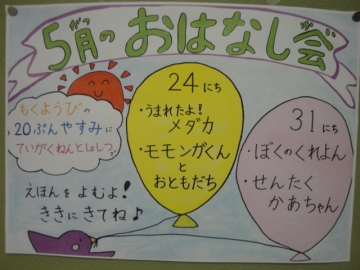 5月のおはなし会
がつ
かい
もくようびの
20ぷんやすみに
ていがくねんとしょしつ
24にち
・うまれたよ!
メダカ
・モモンガくん
と
おともだち
31にち
・ぼくのくれよん
・せんたく
かあちゃん
えほんをよむよ!
ききにきてね♪